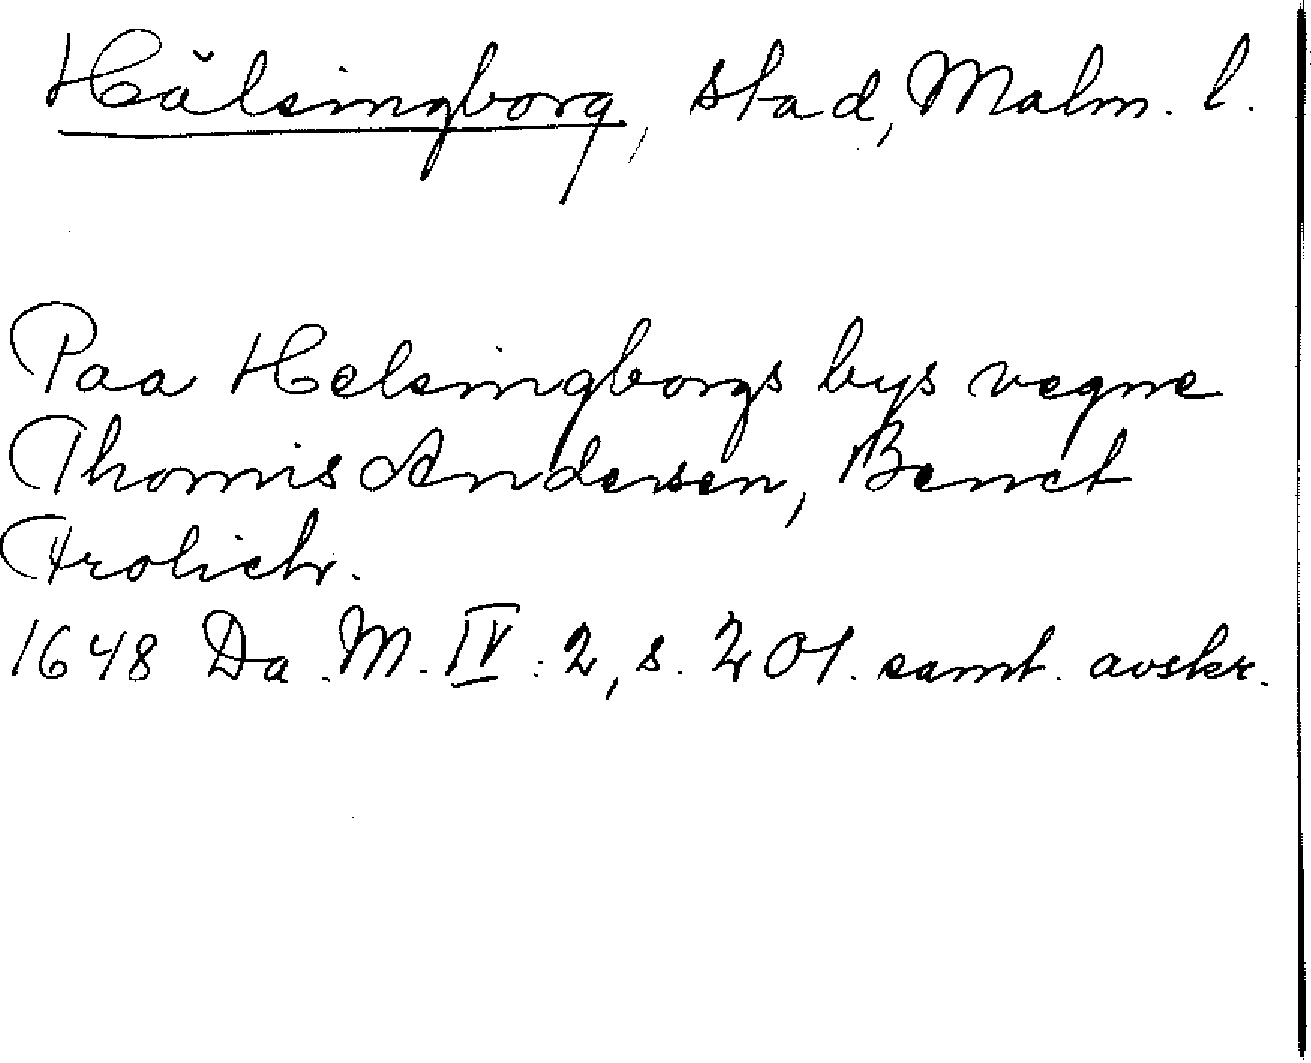 Hälsingborg, stad, Malm. l.
Paa Helsingborgs bys vegne
Thomis Andersen, Benct
Frolich.
1648 Da. M. IV: 2, s. 201. samt. avskr.